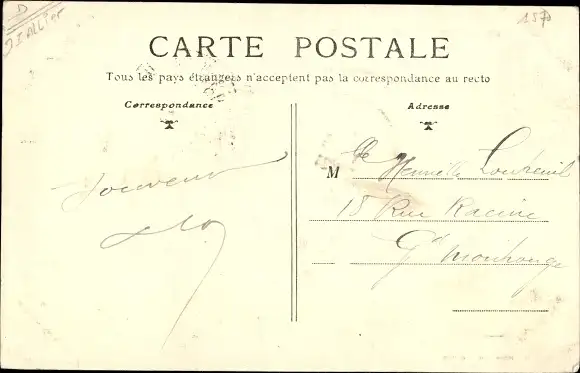 D
Allier
CARTE POSTALE
Tous les pays étrangers n'acceptent pas la correspondance au recto
Correspondance
Adresse
Souvenir
M lle
18 Rue Racine
Gd Montrouge